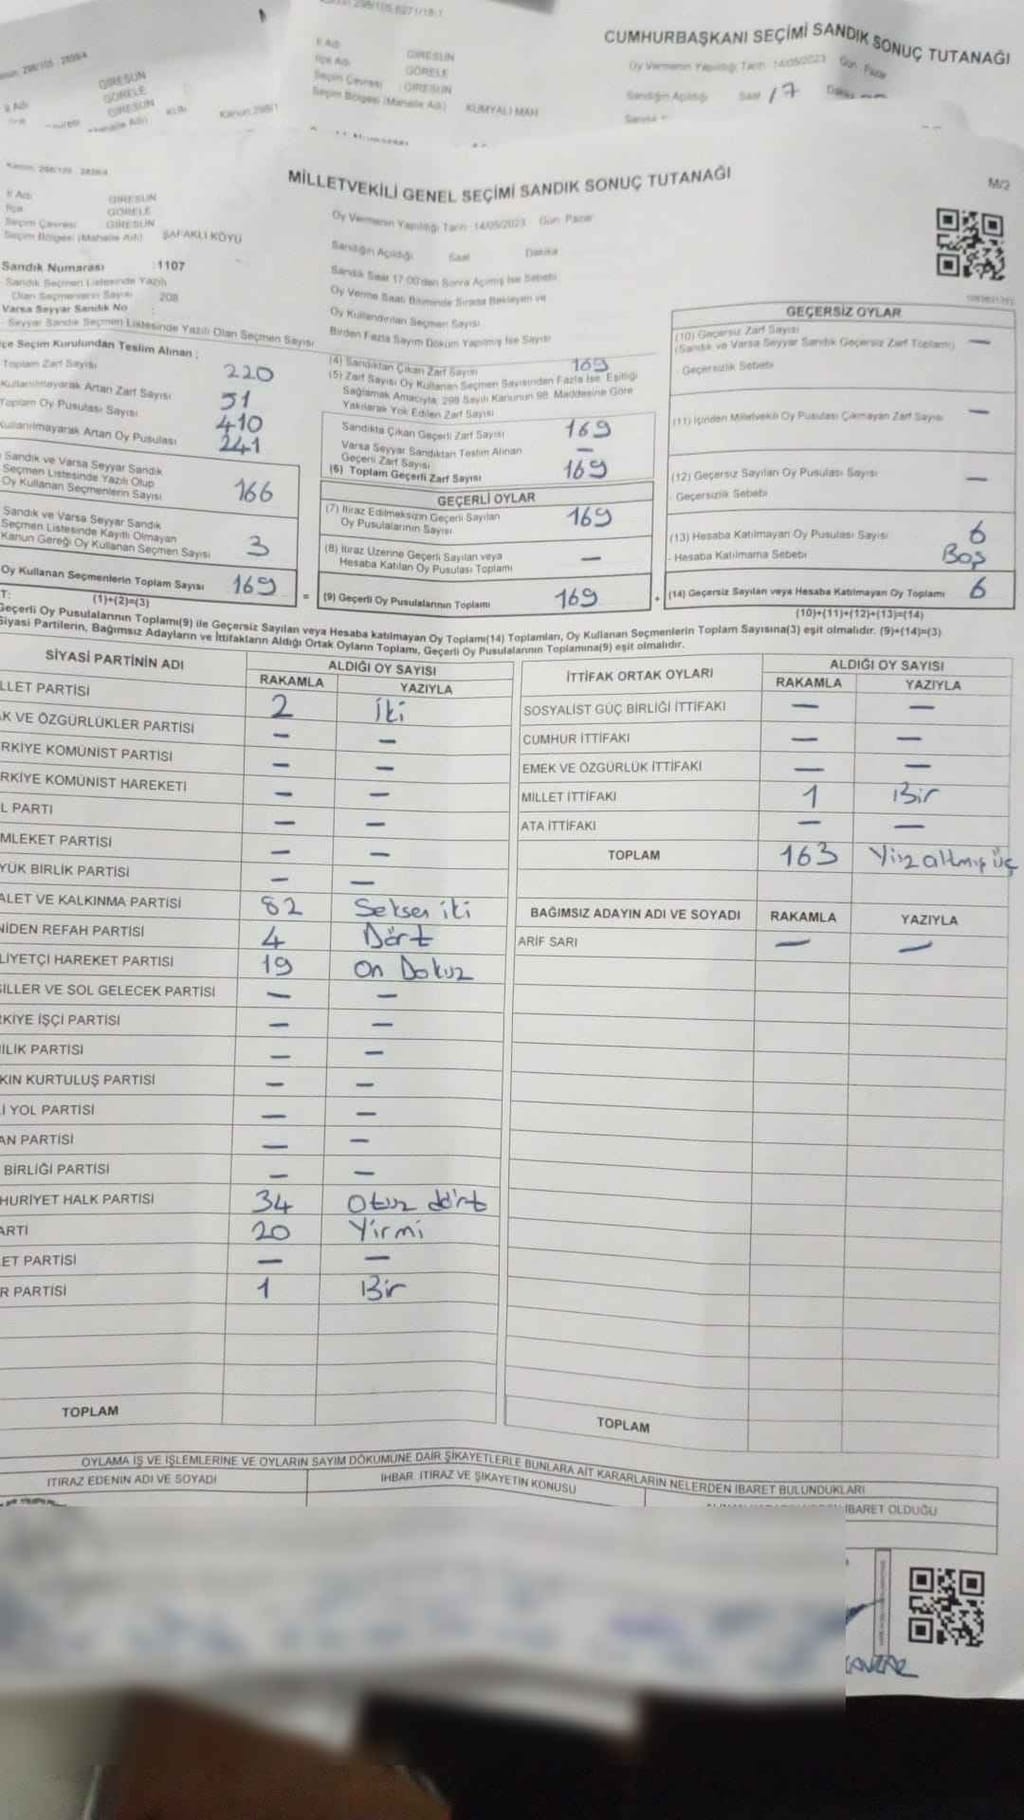 CUMHURBAŞKANI SEÇİMİ SANDIK SONUÇ TUTANAĞI
Oy Vermenin Yapıldığı Tarih : 14/05/2023 Gün : Pazar
Sandığın Açıldığı Saat 17
İl Adı GİRESUN
İlçe Adı GÖRELE
Seçim Çevresi GİRESUN
Seçim Bölgesi (Mahalle Adı) KUMYALI MAH
GİRESUN
GÖRELE
GİRESUN
MİLLETVEKİLİ GENEL SEÇİMİ SANDIK SONUÇ TUTANAĞI
İl Adı GİRESUN
İlçe GÖRELE
Seçim Çevresi GİRESUN
Seçim Bölgesi (Mahalle Adı) ŞAFAKLI KÖYÜ
Sandık Numarası : 1107
Sandık Seçmen Listesinde Yazılı
Olan Seçmenlerin Sayısı 208
Varsa Seyyar Sandık No
Seyyar Sandık Seçmen Listesinde Yazılı Olan Seçmen Sayısı
Oy Vermenin Yapıldığı Tarih : 14/05/2023 Gün : Pazar
Sandığın Açıldığı Saat Dakika
Sandık Saat 17.00'den Sonra Açılmış İse Sebebi
Oy Verme Saati Bitiminde Sırada Bekleyen ve
Oy Kullandırılan Seçmen Sayısı
Birden Fazla Sayım Döküm Yapılmış İse Sayısı
M/2
çe Seçim Kurulundan Teslim Alınan :
Toplam Zarf Sayısı 220
Kullanılmayarak Artan Zarf Sayısı 51
Toplam Oy Pusulası Sayısı 410
Kullanılmayarak Artan Oy Pusulası 241
Sandık ve Varsa Seyyar Sandık
Seçmen Listesinde Yazılı Olup
Oy Kullanan Seçmenlerin Sayısı 166
Sandık ve Varsa Seyyar Sandık
Seçmen Listesinde Kayıtlı Olmayan
Kanun Gereği Oy Kullanan Seçmen Sayısı 3
Oy Kullanan Seçmenlerin Toplam Sayısı 169
(1)+(2)=(3)
(4) Sandıktan Çıkan Zarf Sayısı 169
(5) Zarf Sayısı Oy Kullanan Seçmen Sayısından Fazla İse, Eşitliği
Sağlamak Amacıyla, 298 Sayılı Kanunun 98. Maddesine Göre
Yakılarak Yok Edilen Zarf Sayısı
Sandıkta Çıkan Geçerli Zarf Sayısı 169
Varsa Seyyar Sandıktan Teslim Alınan
Geçerli Zarf Sayısı –
(6) Toplam Geçerli Zarf Sayısı 169
GEÇERLİ OYLAR
(7) İtiraz Edilmeksizin Geçerli Sayılan
Oy Pusulalarının Sayısı 169
(8) İtiraz Üzerine Geçerli Sayılan veya
Hesaba Katılan Oy Pusulası Toplamı –
= (9) Geçerli Oy Pusulalarının Toplamı 169 +
GEÇERSİZ OYLAR
(10) Geçersiz Zarf Sayısı
(Sandık ve Varsa Seyyar Sandık Geçersiz Zarf Toplamı) –
- Geçersizlik Sebebi
(11) İçinden Milletvekili Oy Pusulası Çıkmayan Zarf Sayısı –
(12) Geçersiz Sayılan Oy Pusulası Sayısı –
- Geçersizlik Sebebi
(13) Hesaba Katılmayan Oy Pusulası Sayısı 6
- Hesaba Katılmama Sebebi Boş
(14) Geçersiz Sayılan veya Hesaba Katılmayan Oy Toplamı 6
(10)+(11)+(12)+(13)=(14)
Geçerli Oy Pusulalarının Toplamı(9) ile Geçersiz Sayılan veya Hesaba katılmayan Oy Toplamı(14) Toplamları, Oy Kullanan Seçmenlerin Toplam Sayısına(3) eşit olmalıdır. (9)+(14)=(3)
Siyasi Partilerin, Bağımsız Adayların ve İttifakların Aldığı Ortak Oyların Toplamı, Geçerli Oy Pusulalarının Toplamına(9) eşit olmalıdır.
SİYASİ PARTİNİN ADI ALDIĞI OY SAYISI
RAKAMLA YAZIYLA
LLET PARTİSİ 2 İki
K VE ÖZGÜRLÜKLER PARTİSİ – –
RKİYE KOMÜNİST PARTİSİ – –
RKİYE KOMÜNİST HAREKETİ – –
L PARTİ – –
MLEKET PARTİSİ – –
YÜK BİRLİK PARTİSİ – –
ALET VE KALKINMA PARTİSİ 82 Seksen iki
NİDEN REFAH PARTİSİ 4 Dört
LİYETÇİ HAREKET PARTİSİ 19 on Dokuz
ŞİLLER VE SOL GELECEK PARTİSİ – –
RKİYE İŞÇİ PARTİSİ – –
İLİK PARTİSİ – –
KIN KURTULUŞ PARTİSİ – –
İ YOL PARTİSİ – –
AN PARTİSİ – –
BİRLİĞİ PARTİSİ – –
HURİYET HALK PARTİSİ 34 Otuz dört
ARTİ 20 Yirmi
ET PARTİSİ – –
R PARTİSİ 1 Bir
TOPLAM
İTTİFAK ORTAK OYLARI ALDIĞI OY SAYISI
RAKAMLA YAZIYLA
SOSYALİST GÜÇ BİRLİĞİ İTTİFAKI – –
CUMHUR İTTİFAKI – –
EMEK VE ÖZGÜRLÜK İTTİFAKI – –
MİLLET İTTİFAKI 1 Bir
ATA İTTİFAKI – –
TOPLAM 163 Yüz altmış üç
BAĞIMSIZ ADAYIN ADI VE SOYADI RAKAMLA YAZIYLA
ARİF SARI – –
TOPLAM
OYLAMA İŞ VE İŞLEMLERİNE VE OYLARIN SAYIM DÖKÜMÜNE DAİR ŞİKAYETLERLE BUNLARA AİT KARARLARIN NELERDEN İBARET BULUNDUKLARI
İTİRAZ EDENİN ADI VE SOYADI İHBAR, İTİRAZ VE ŞİKAYETİN KONUSU
İBARET OLDUĞU